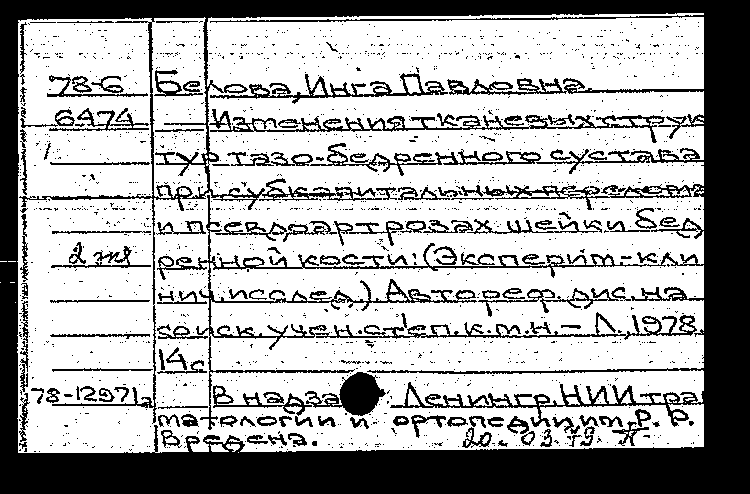 78-6 Белова, Инга Павловна.
6474 Изменения тканевых струк
тур тазо-бедренного сустава
при субкапитальных перелома
и псевдоартрозах шейки бед
2 экз ренной кости: (Эксперим-кли
нич. исслед.) Автореф. дис. на
соиск. учен. степ. к.м.н. – Л., 1978.
14с
78-12971а В надзаг Ленингр. НИИ трав
матологии и ортопедии им. Р. Р.
Вредена. 20. 03. 79.